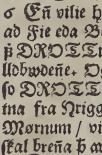 6 Eñ vilie þ
ad Fie eda B
þ DROTT
lldbwdeñe. O
so DROTT
tna fra Nrigg
Mørnum / vi
skal breña þ